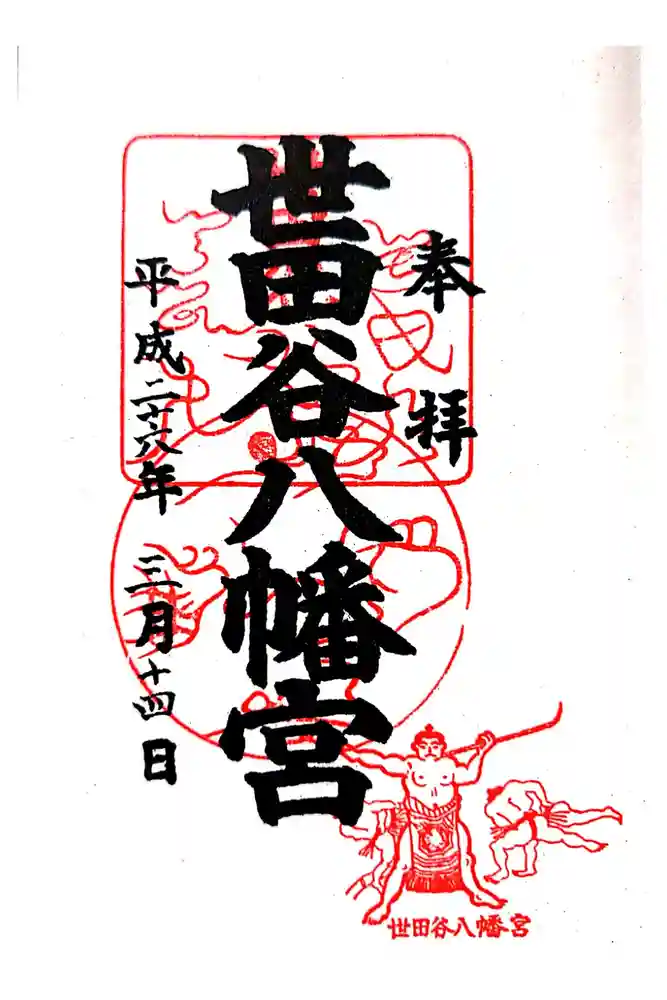 奉拝
世田谷八幡宮
平成二十六年 三月十四日
世田谷八幡宮